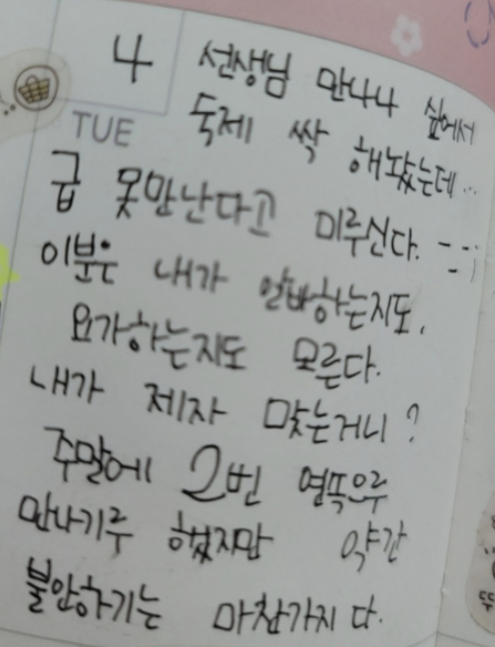 4 선생님 만나나 싶어서
TUE 숙제 싹 해놨는데...
급 못만난다고 미루신다. --;
이분은 내가 알바하는지도,
요가하는지도 모른다.
내가 제자 맞는거니?
주말에 2번 연뜩으루
만나기루 했지만 약간
불안하기는 마찬가지다.